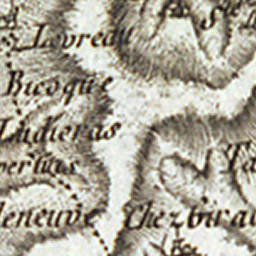 Lavreau
Bicoque
Ludieras
pertuis
leneuve
Chez birau
Ta